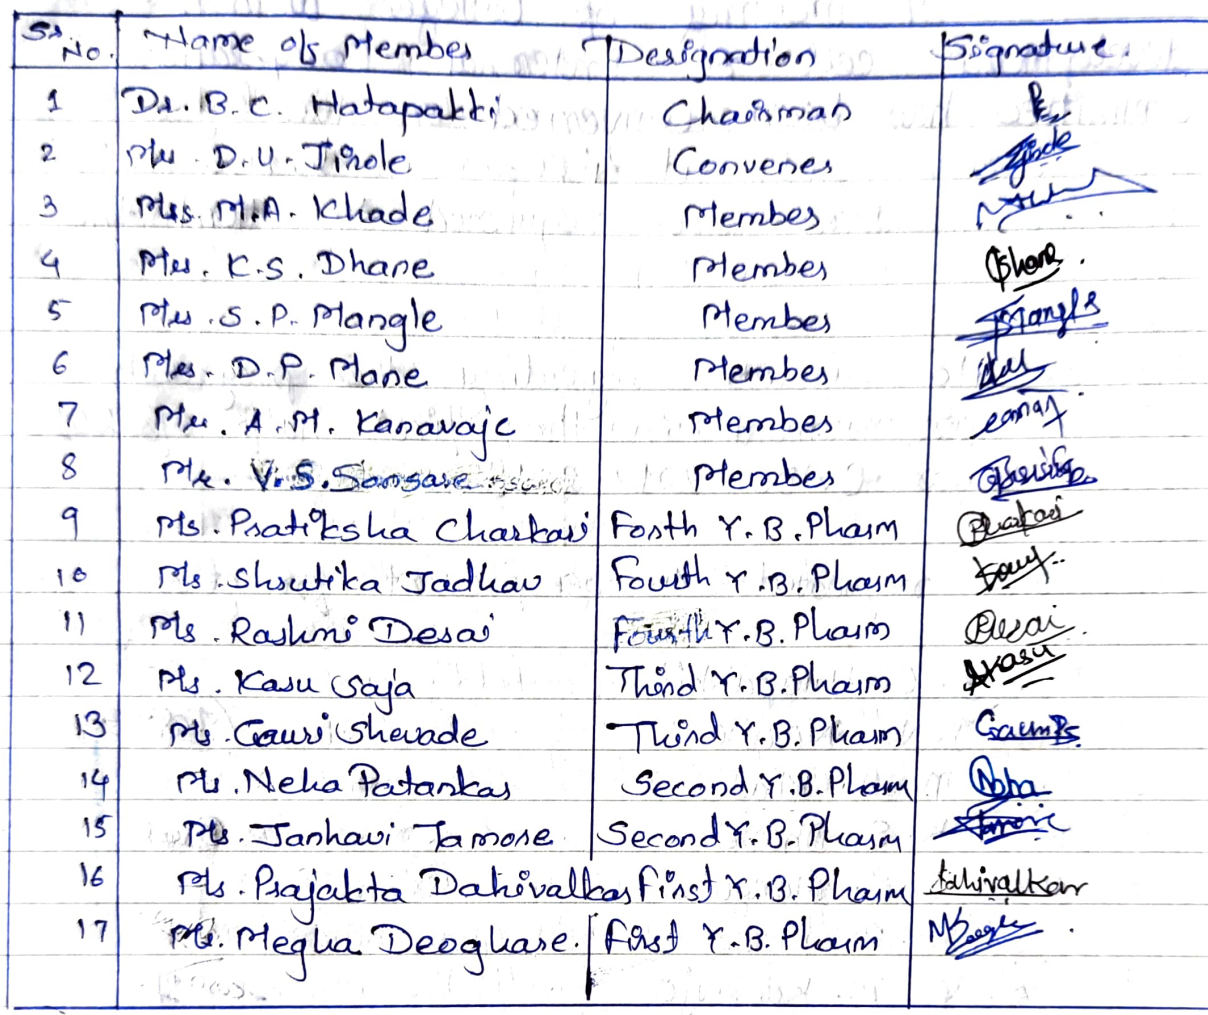 Sr. No. Name of Member Designation Signature.
1 Dr. B. C. Hatapakki Chairman
2 Mr. D. U. Jirole Convener
3 Mrs. M. A. Khade Member
4 Mrs. K. S. Dhane Member Dhane.
5 Mrs. S. P. Mangle Member Mangle
6 Mrs. D. P. Mane Member
7 Mr. A. M. Kanavaje Member
8 Mr. V. S. Sansare Member
9 Ms. Pratiksha Charkari Forth Y. B. Pharm Charkari
10 Ms. Shrutika Jadhav Fourth Y. B. Pharm
11 Ms. Rashmi Desai Fourth Y. B. Pharm Desai
12 Ms. Kasu Saja Third Y. B. Pharm Kasu
13 Ms. Gauri Shevade Third Y. B. Pharm
14 Ms. Neha Patankar Second Y. B. Pharm Neha
15 Ms. Janhavi Tamore Second Y. B. Pharm Tamore
16 Ms. Prajakta Dahivalkar First Y. B. Pharm Dahivalkar
17 Ms. Megha Deoghare. First Y. B. Pharm